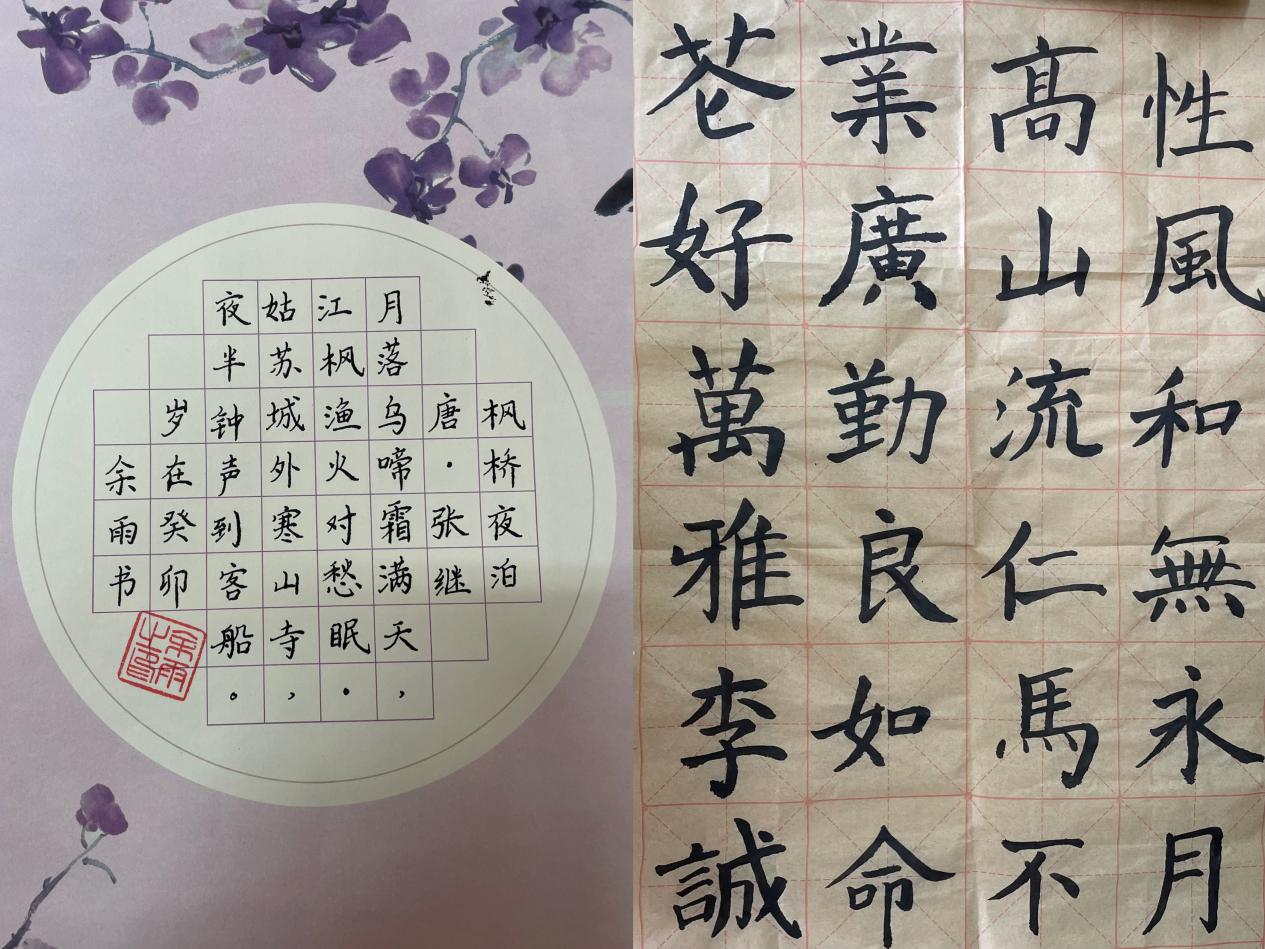 枫桥夜泊
唐·张继
月落乌啼霜满天，
江枫渔火对愁眠。
姑苏城外寒山寺，
夜半钟声到客船。
岁在癸卯
余雨书
余雨之印
性風和無永月
髙山流仁馬不
業廣勤良如命
苍好萬雅李誠